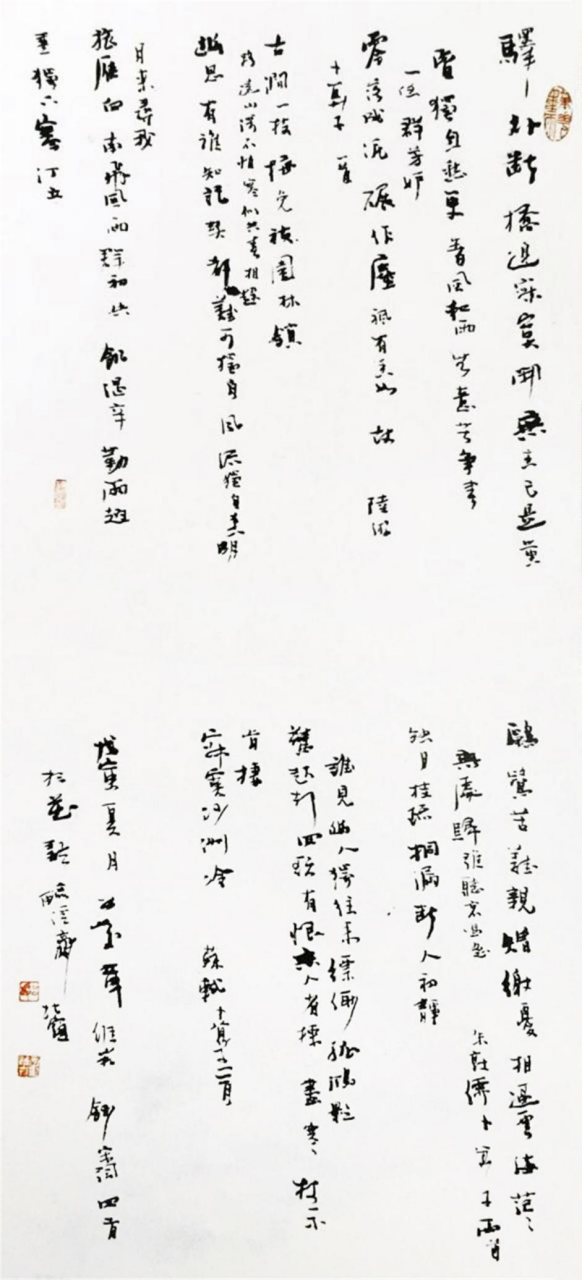 驛外斷橋邊寂寞開無主已是黃
昏獨自愁更著風和雨無意苦爭春
一任群芳妒
零落成泥碾作塵祇有香如故 陸游
卜算子 一首
古澗一枝梅免被園林鎖
路遠山深不怕寒似共春相趓
幽思有誰知託契都難可獨自風流獨自香明
月來尋我
旅雁向南飛風雨群初失飢渴辛勤兩翅
垂獨下寒汀立
鷗鷺苦難親矰繳憂相逼雲海茫〻
無處歸誰聽哀鳴急
朱敦儒卜算子兩首
缺月挂疏桐漏斷人初靜
誰見幽人獨往來縹緲孤鴻影
驚起却回頭有恨無人省揀盡寒枝不
肯棲
寂寞沙洲冷 蘇軾卜算子一首
寅夏月 鈔 四首
於